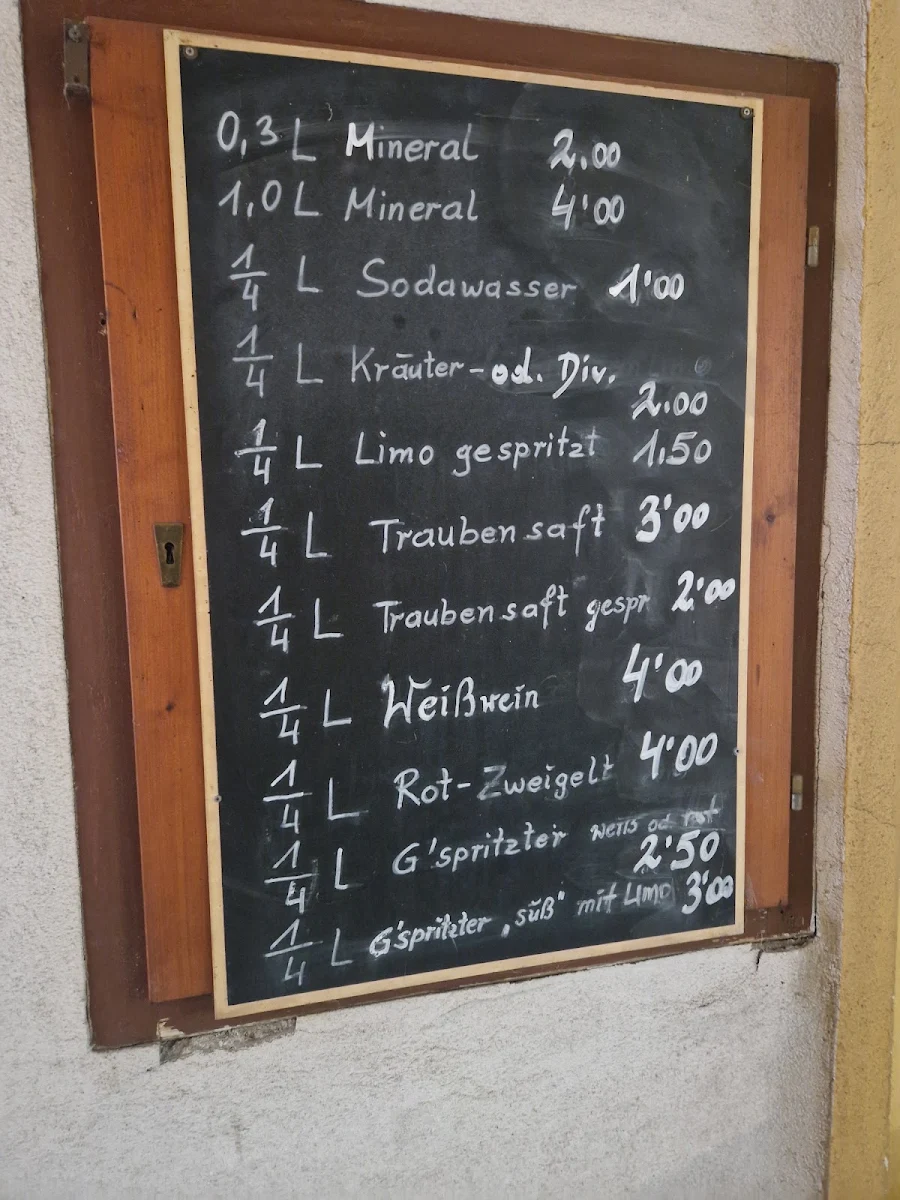 0,3 L Mineral 2.00
1,0 L Mineral 4'00
1/4 L Sodawasser 1'00
1/4 L Kräuter-od. Div.
2.00
1/4 L Limo gespritzt 1.50
1/4 L Traubensaft 3'00
1/4 L Traubensaft gespr 2'00
1/4 L Weißwein 4'00
1/4 L Rot-Zweigelt 4'00
1/4 L G'spritzter weiß od. rot
2'50
1/4 L G'spritzter „süß" mit Limo 3'00